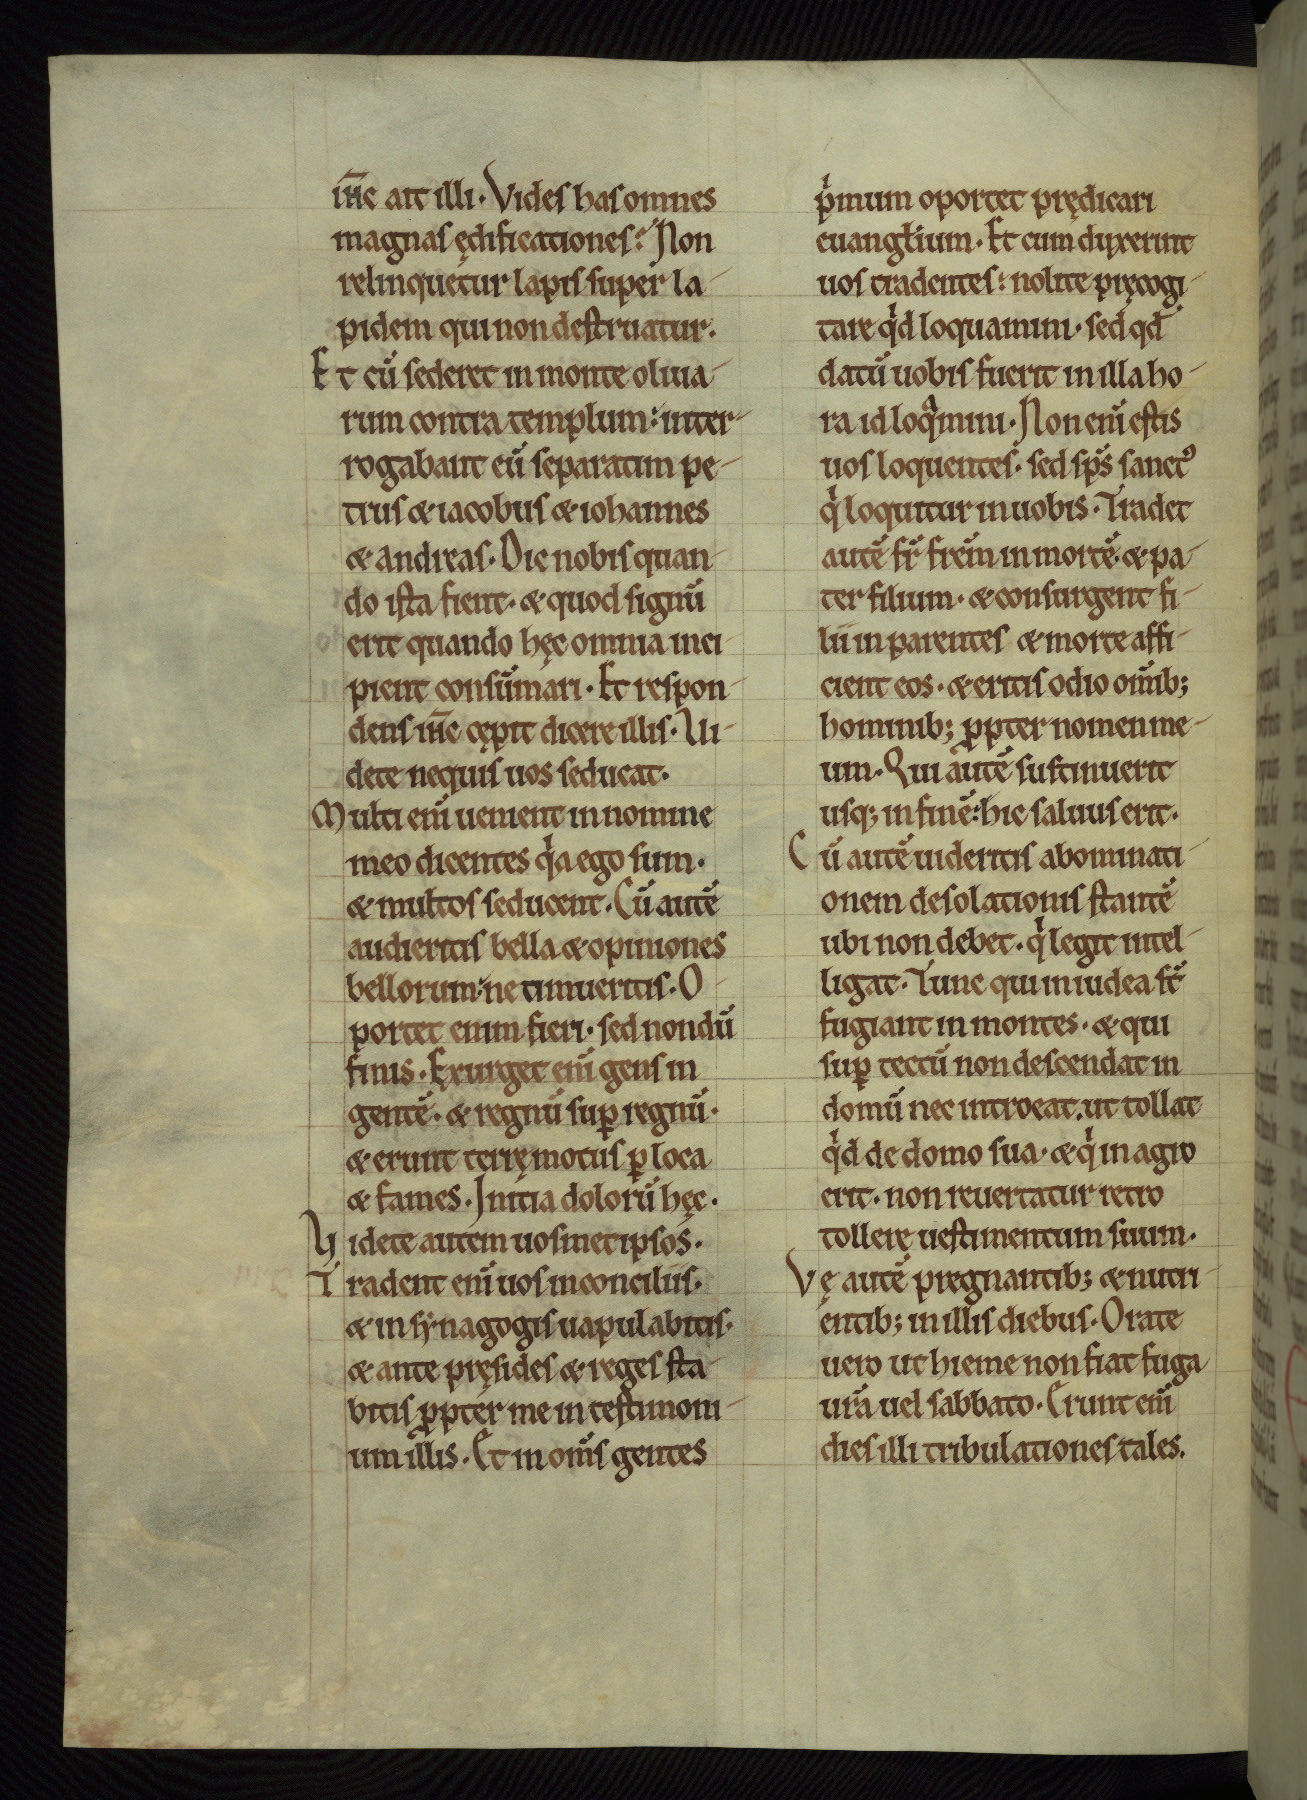 ih̅c ait illi. Vides has omnes
magnas ędificationes? Non
relinquetur lapis super la-
pidem qui non destruatur.
Et cū sederet in monte oliua-
rum contra templum: inter-
rogabant eū separatim pe-
trus & iacobus & iohannes
& andreas. Dic nobis quan-
do ista fient. & quod signū
erit quando hęc omnia inci-
pient consūmari. Et respon-
dens ih̅c cępit dicere illis. Ui-
dete nequis uos seducat.
Multi eni̅ uenient in nomine
meo dicentes qͥa ego sum.
& multos seducent. Cū autē
audieritis bella & opiniones
bellorum: ne timueritis. O-
portet enim fieri. sed nondū
finis. Exurget eni̅ gens in
gentē. & regnū sup̱ regnū.
& erunt terręmotus p̱ loca
& fames. Initia dolorū hęc.
Videte autem uosmetipsos.
Tradent eni̅ uos in conciliis.
& in synagogis uapulabitis.
& ante pręsides & reges sta-
bitis ꝓpter me in testimoni-
um illis. Et in om̅s gentes
pͥmum oportet prędicari
euangłium. Et cum duxerint
uos tradentes: nolite pręcogi-
tare qͥd loquamini. sed qd̅
datū uobis fuerit in illa ho-
ra id loqͣmini. Non eni̅ estis
uos loquentes. sed sp̅s sanctꝰ
qͥ loquitur in uobis. Tradet
autē fr̅ frēm in mortē. & pa-
ter filium. & consurgent fi-
lii in parentes & morte affi-
cient eos. & eritis odio om̅ib;
hominib; ꝓpter nomen me-
um. Qui autē sustinuerit
usq; in finē: hic saluus erit.
Cū autē uideritis abominati-
onem desolationis stantē
ubi non debet. qͥ legit intel-
ligat. Tunc qui in iudea st̅
fugiant in montes. & qui
sup̱ tectū non descendat in
domū nec introeat. ut tollat
qͥd de domo sua. & qͥ in agro
erit. non reuertatur retro
tollerę uestimentum suum.
Vę autē pregnantib; & nutri-
entib; in illis diebus. Orate
uero ut hieme non fiat fuga
ur̅a uel sabbato. Erunt eni̅
dies illi tribulationes tales.